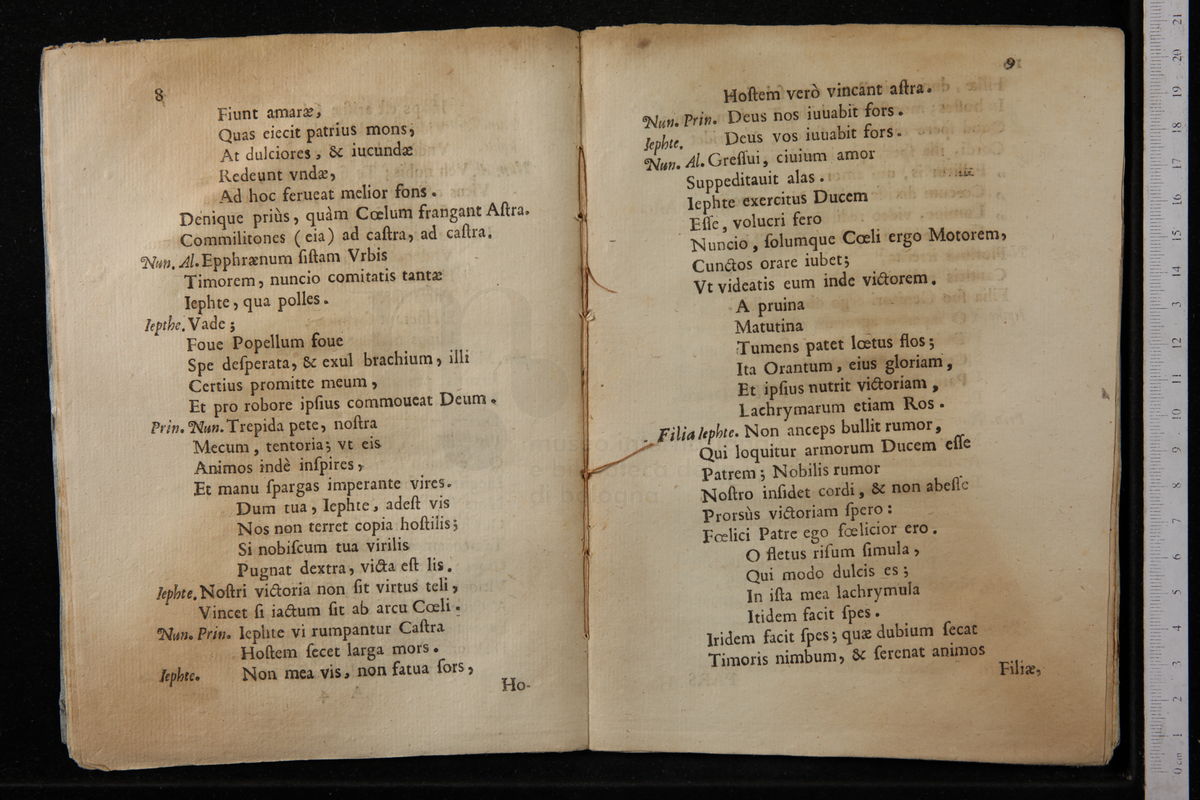 8
Fiunt amaræ,
Quas eiecit patrius mons,
At dulciores, & iucundæ
Redeunt vndæ,
Ad hoc ferueat melior fons.
Denique priùs, quàm Cœlum frangant Aſtra.
Commilitones (eia) ad caſtra, ad caſtra.
Nun. Al. Epphrænum ſiſtam Vrbis
Timorem, nuncio comitatis tantæ
Iephte, qua polles.
Iepthe. Vade;
Foue Popellum foue
Spe deſperata, & exul brachium, illi
Certius promitte meum,
Et pro robore ipſius commoueat Deum.
Prin. Nun. Trepida pete, noſtra
Mecum, tentoria; vt eis
Animos indè inſpires,
Et manu ſpargas imperante vires.
Dum tua, Iephte, adeſt vis
Nos non terret copia hoſtilis;
Si nobiſcum tua virilis
Pugnat dextra, victa eſt lis.
Iephte. Noſtri victoria non ſit virtus teli,
Vincet ſi iactum ſit ab arcu Cœli.
Nun. Prin. Iephte vi rumpantur Caſtra
Hoſtem ſecet larga mors.
Iephte. Non mea vis, non fatua fors,
Ho-
9
Hoſtem verò vincant aſtra.
Nun. Prin. Deus nos iuuabit fors.
Iephte. Deus vos iuuabit fors.
Nun. Al. Greſſui, ciuium amor
Suppeditauit alas.
Iephte exercitus Ducem
Eſſe, volucri fero
Nuncio, ſolumque Cœli ergo Motorem,
Cunctos orare iubet;
Vt videatis eum inde victorem.
A pruina
Matutina
Tumens patet lœtus flos;
Ita Orantum, eius gloriam,
Et ipſius nutrit victoriam,
Lachrymarum etiam Ros.
Filia Iephte. Non anceps bullit rumor,
Qui loquitur armorum Ducem eſſe
Patrem; Nobilis rumor
Noſtro inſidet cordi, & non abeſſe
Prorsùs victoriam ſpero:
Fœlici Patre ego fœlicior ero.
O fletus riſum ſimula,
Qui modo dulcis es;
In iſta mea lachrymula
Itidem facit ſpes.
Iridem facit ſpes; quæ dubium ſecat
Timoris nimbum, & ſerenat animos
Filiæ,